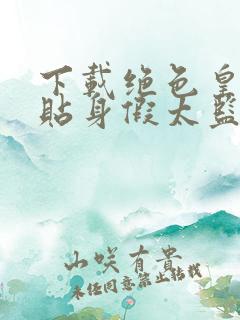 下載绝色皇
貼身假太監
山咲有貴
未经同意禁止转载